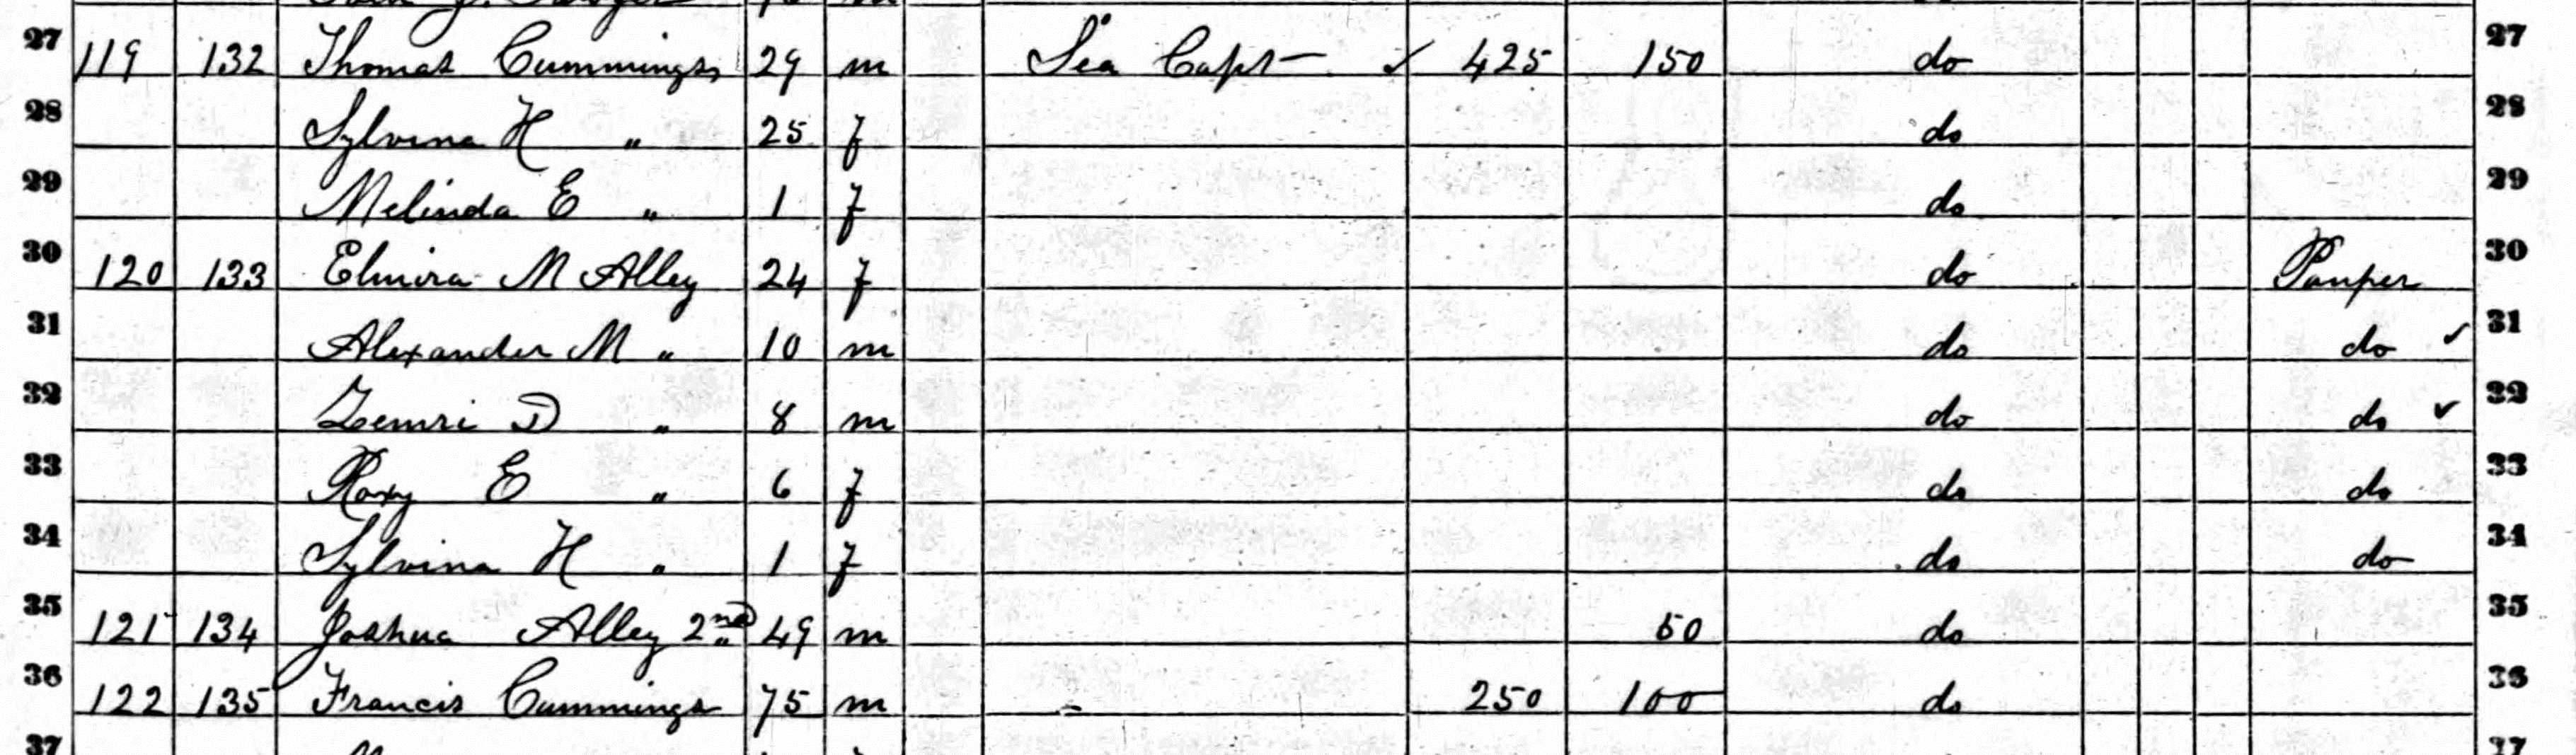 27 119 132 Thomas Cummings 29 m Sea Capt ✓ 425 150 do 27
28 Sylvina H " 25 f do 28
29 Melinda E " 1 f do 29
30 120 133 Elmira M Alley 24 f do Pauper 30
31 Alexander M " 10 m do do ✓ 31
32 Zemri D " 8 m do do ✓ 32
33 Roxy E " 6 f do do 33
34 Sylvina H " 1 f do do 34
35 121 134 Joshua Alley 2nd 49 m 50 do 35
36 122 135 Francis Cummings 75 m 250 100 do 36
37 37